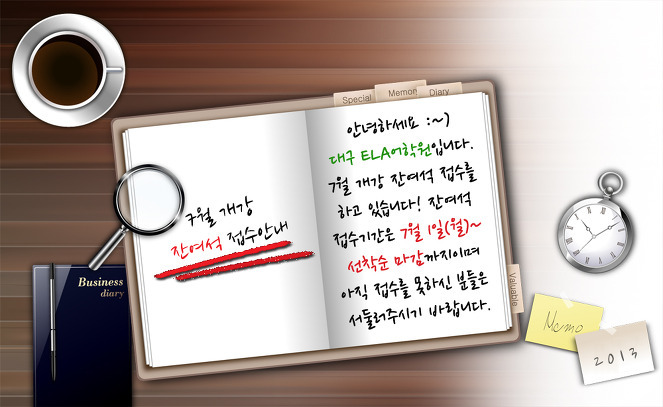 Special
Memory
Diary
7월 개강
잔여석 접수안내
안녕하세요 :~)
대구 ELA어학원입니다.
7월 개강 잔여석 접수를
하고 있습니다! 잔여석
접수기간은 7월 1일(월)~
선착순 마감까지이며
아직 접수를 못하신 분들은
서둘러주시기 바랍니다.
Valuable
Business
diary
Memo
2013